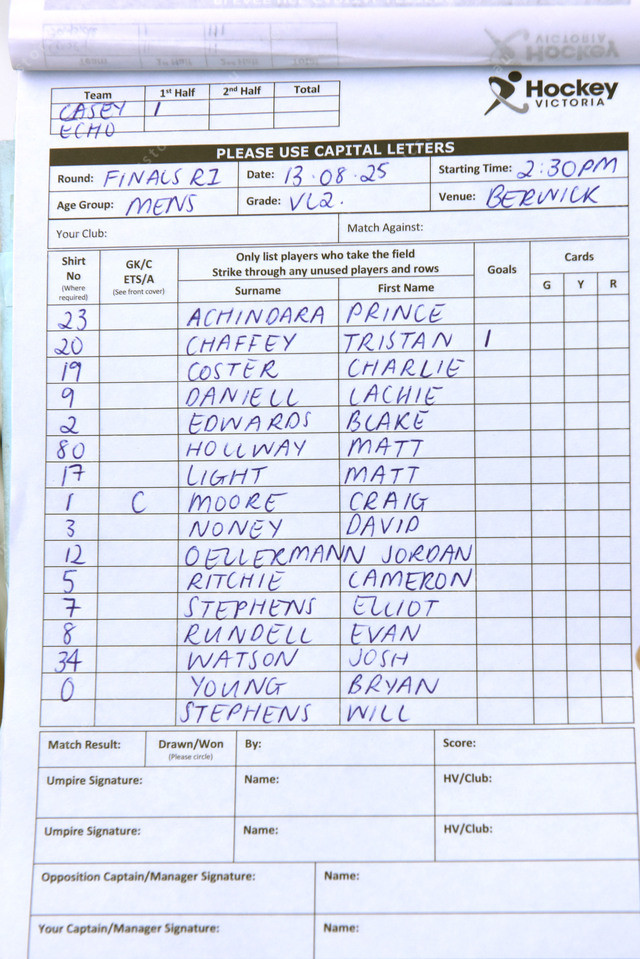 Team 1st Half 2nd Half Total
CASEY 1
ECHO
Hockey
VICTORIA
PLEASE USE CAPITAL LETTERS
Round: FINALS R1 Date: 13.08.25 Starting Time: 2:30PM
Age Group: MENS Grade: VL2. Venue: BERWICK
Your Club: Match Against:
Shirt No (Where required) GK/C ETS/A (See front cover) Only list players who take the field Strike through any unused players and rows Goals Cards
Surname First Name G Y R
23 ACHINDARA PRINCE
20 CHAFFEY TRISTAN 1
19 COSTER CHARLIE
9 DANIELL LACHIE
2 EDWARDS BLAKE
80 HOLLWAY MATT
17 LIGHT MATT
1 C MOORE CRAIG
3 NONEY DAVID
12 OELLERMANN JORDAN
5 RITCHIE CAMERON
7 STEPHENS ELLIOT
8 RUNDELL EVAN
34 WATSON JOSH
0 YOUNG BRYAN
STEPHENS WILL
Match Result: Drawn/Won (Please circle) By: Score:
Umpire Signature: Name: HV/Club:
Umpire Signature: Name: HV/Club:
Opposition Captain/Manager Signature: Name:
Your Captain/Manager Signature: Name: